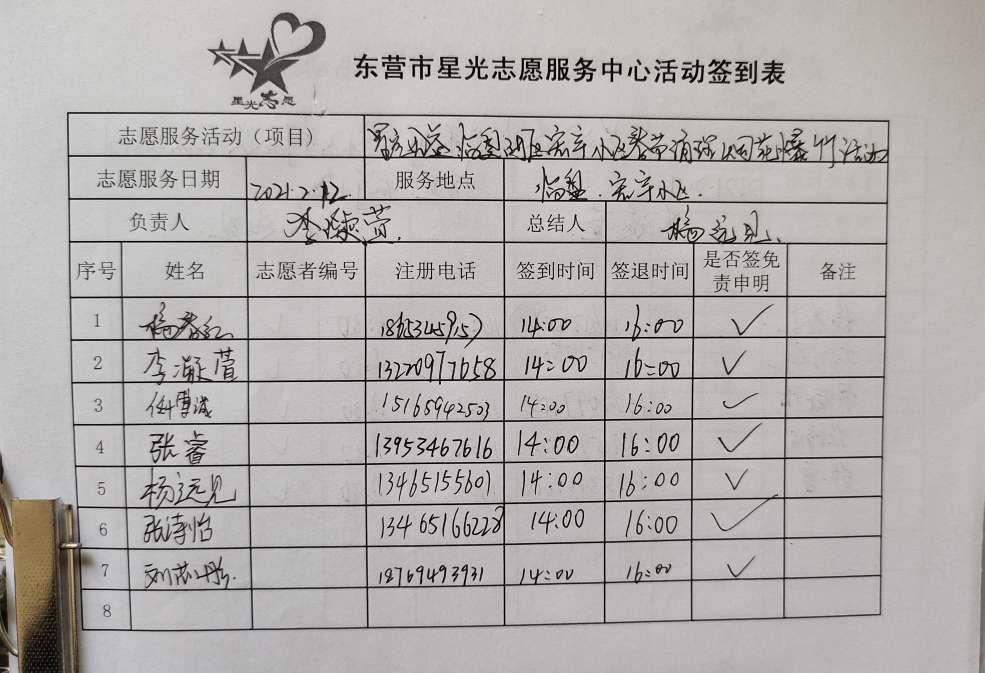 星光志愿
东营市星光志愿服务中心活动签到表
志愿服务活动（项目） 临盘 宏宇小区 爆竹活动
志愿服务日期 2021.2.12 服务地点 临盘.宏宇小区.
负责人 李凝萱. 总结人 杨远见.
序号 姓名 志愿者编号 注册电话 签到时间 签退时间 是否签免责申明 备注
1 杨春红 14:00 16:00 ✓
2 李凝萱 13220977658 14:00 16:00 ✓
3 任博诚 15165942503 14:00 16:00 ✓
4 张睿 13953467616 14:00 16:00 ✓
5 杨远见 13465155601 14:00 16:00 ✓
6 张涛怡 13465166228 14:00 16:00 ✓
7 刘芯彤. 18769493931 14:00 16:00 ✓
8